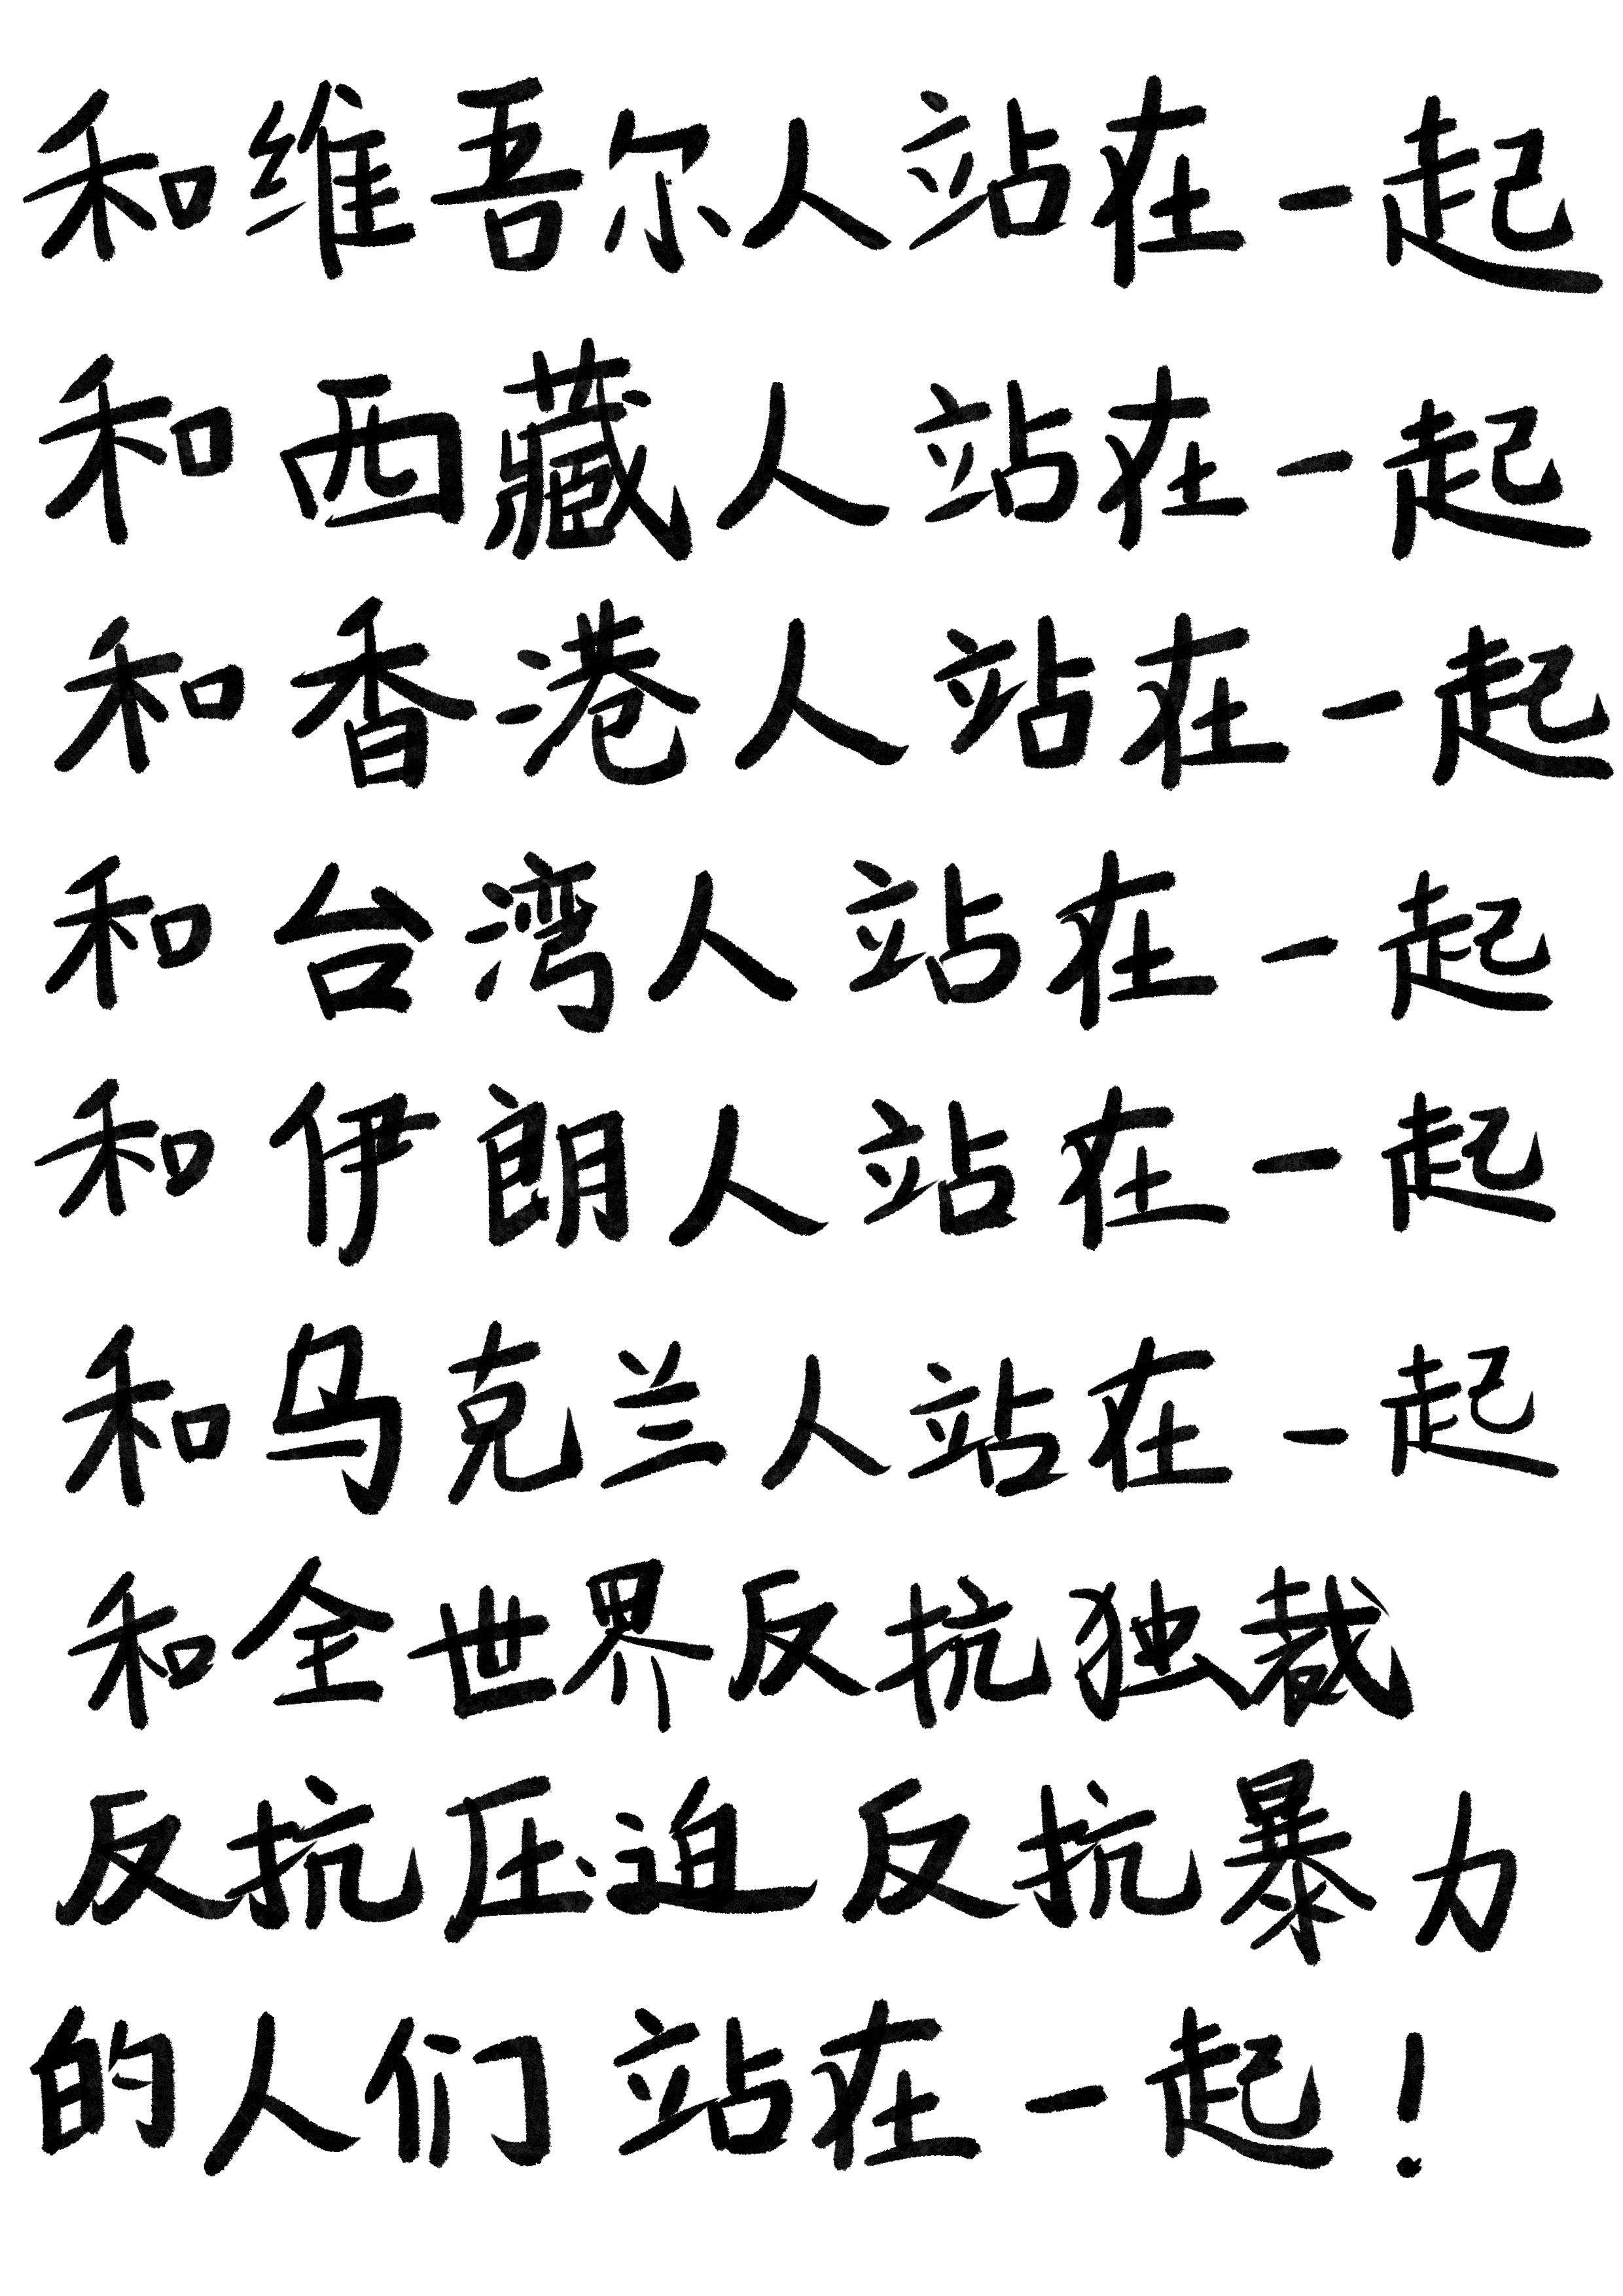 和维吾尔人站在一起
和西藏人站在一起
和香港人站在一起
和台湾人站在一起
和伊朗人站在一起
和乌克兰人站在一起
和全世界反抗独裁
反抗压迫 反抗暴力
的人们 站在一起！